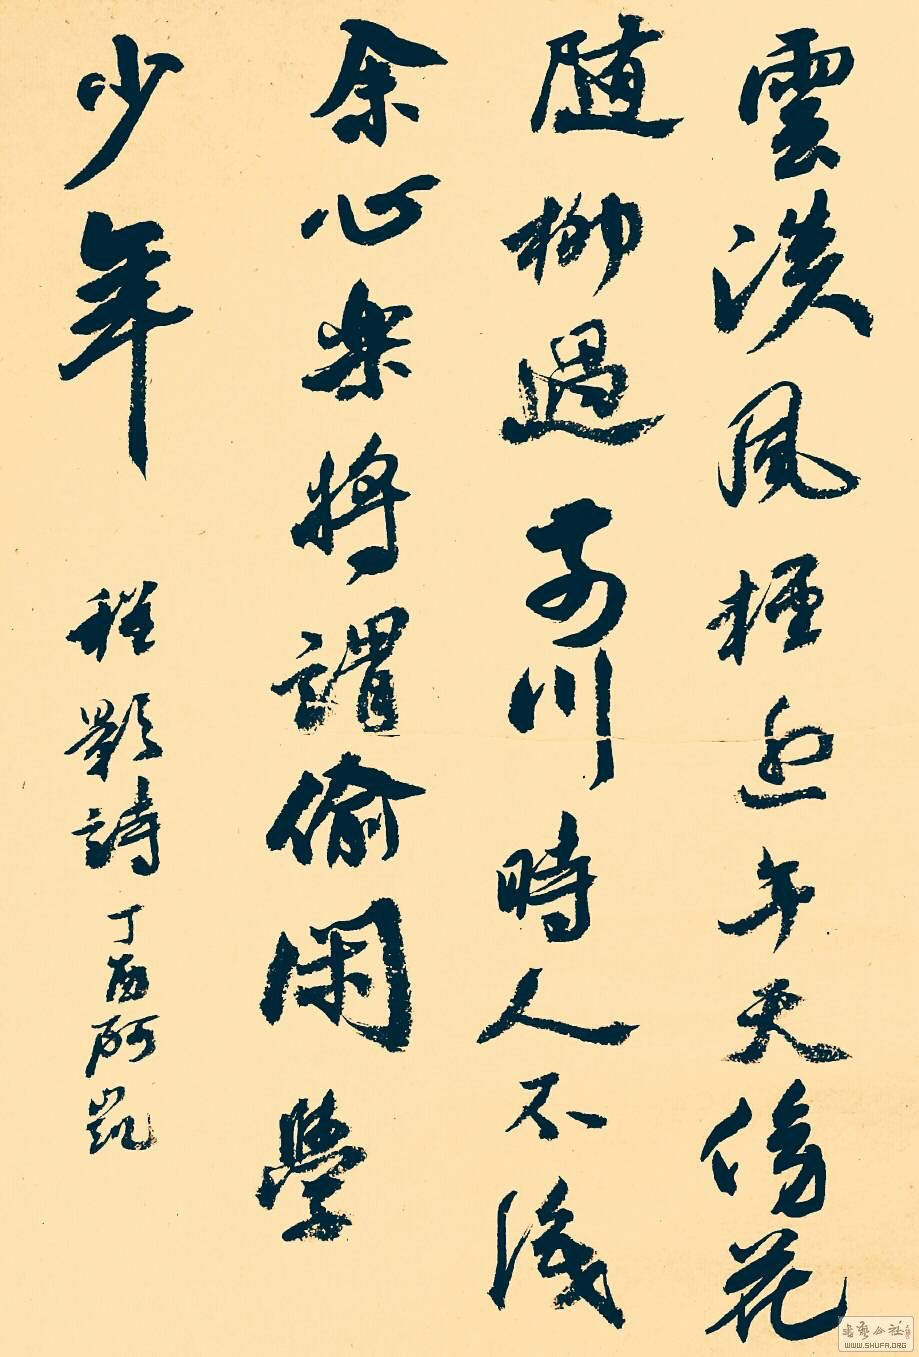 雲淡風輕近午天傍花
隨柳過前川時人不淺
余心樂將謂偷閑學
少年
程影詩丁酉阿凱
書藝公社
WWW.SHUFA.ORG